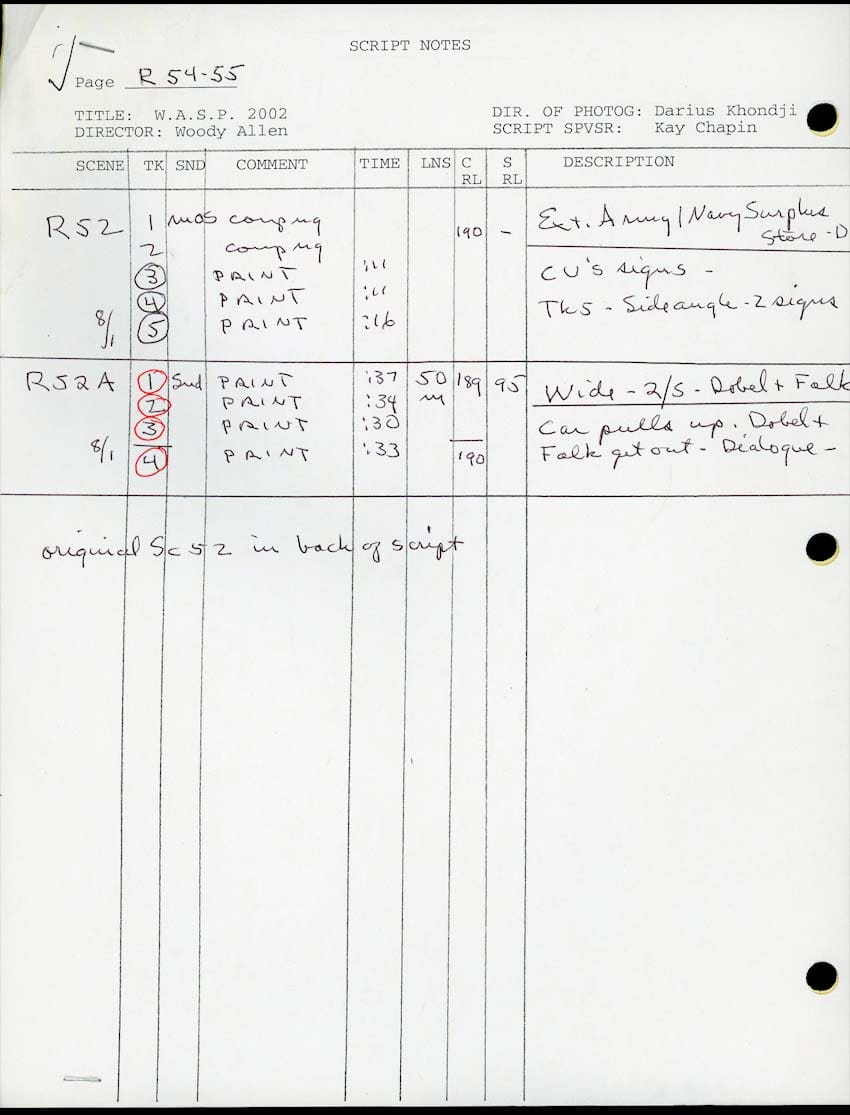 SCRIPT NOTES
Page R 54-55
TITLE: W.A.S.P. 2002 DIR. OF PHOTOG: Darius Khondji
DIRECTOR: Woody Allen SCRIPT SPVSR: Kay Chapin
SCENE TK SND COMMENT TIME LNS C RL S RL DESCRIPTION
R52 1 MOS comp ng 190 - Ext. Army/Navy Surplus Store - D
2 comp ng
3 PRINT :11 CU's signs -
4 PRINT :11 Tk5 - Side angle - 2 signs
8/1 5 PRINT :16
R52A 1 Snd PRINT :37 50 189 95 Wide - 2/S - Dobel + Falk
2 PRINT :34 m
3 PRINT :30 Car pulls up. Dobel +
8/1 4 PRINT :33 190 Falk get out - Dialogue -
original Sc 52 in back of script